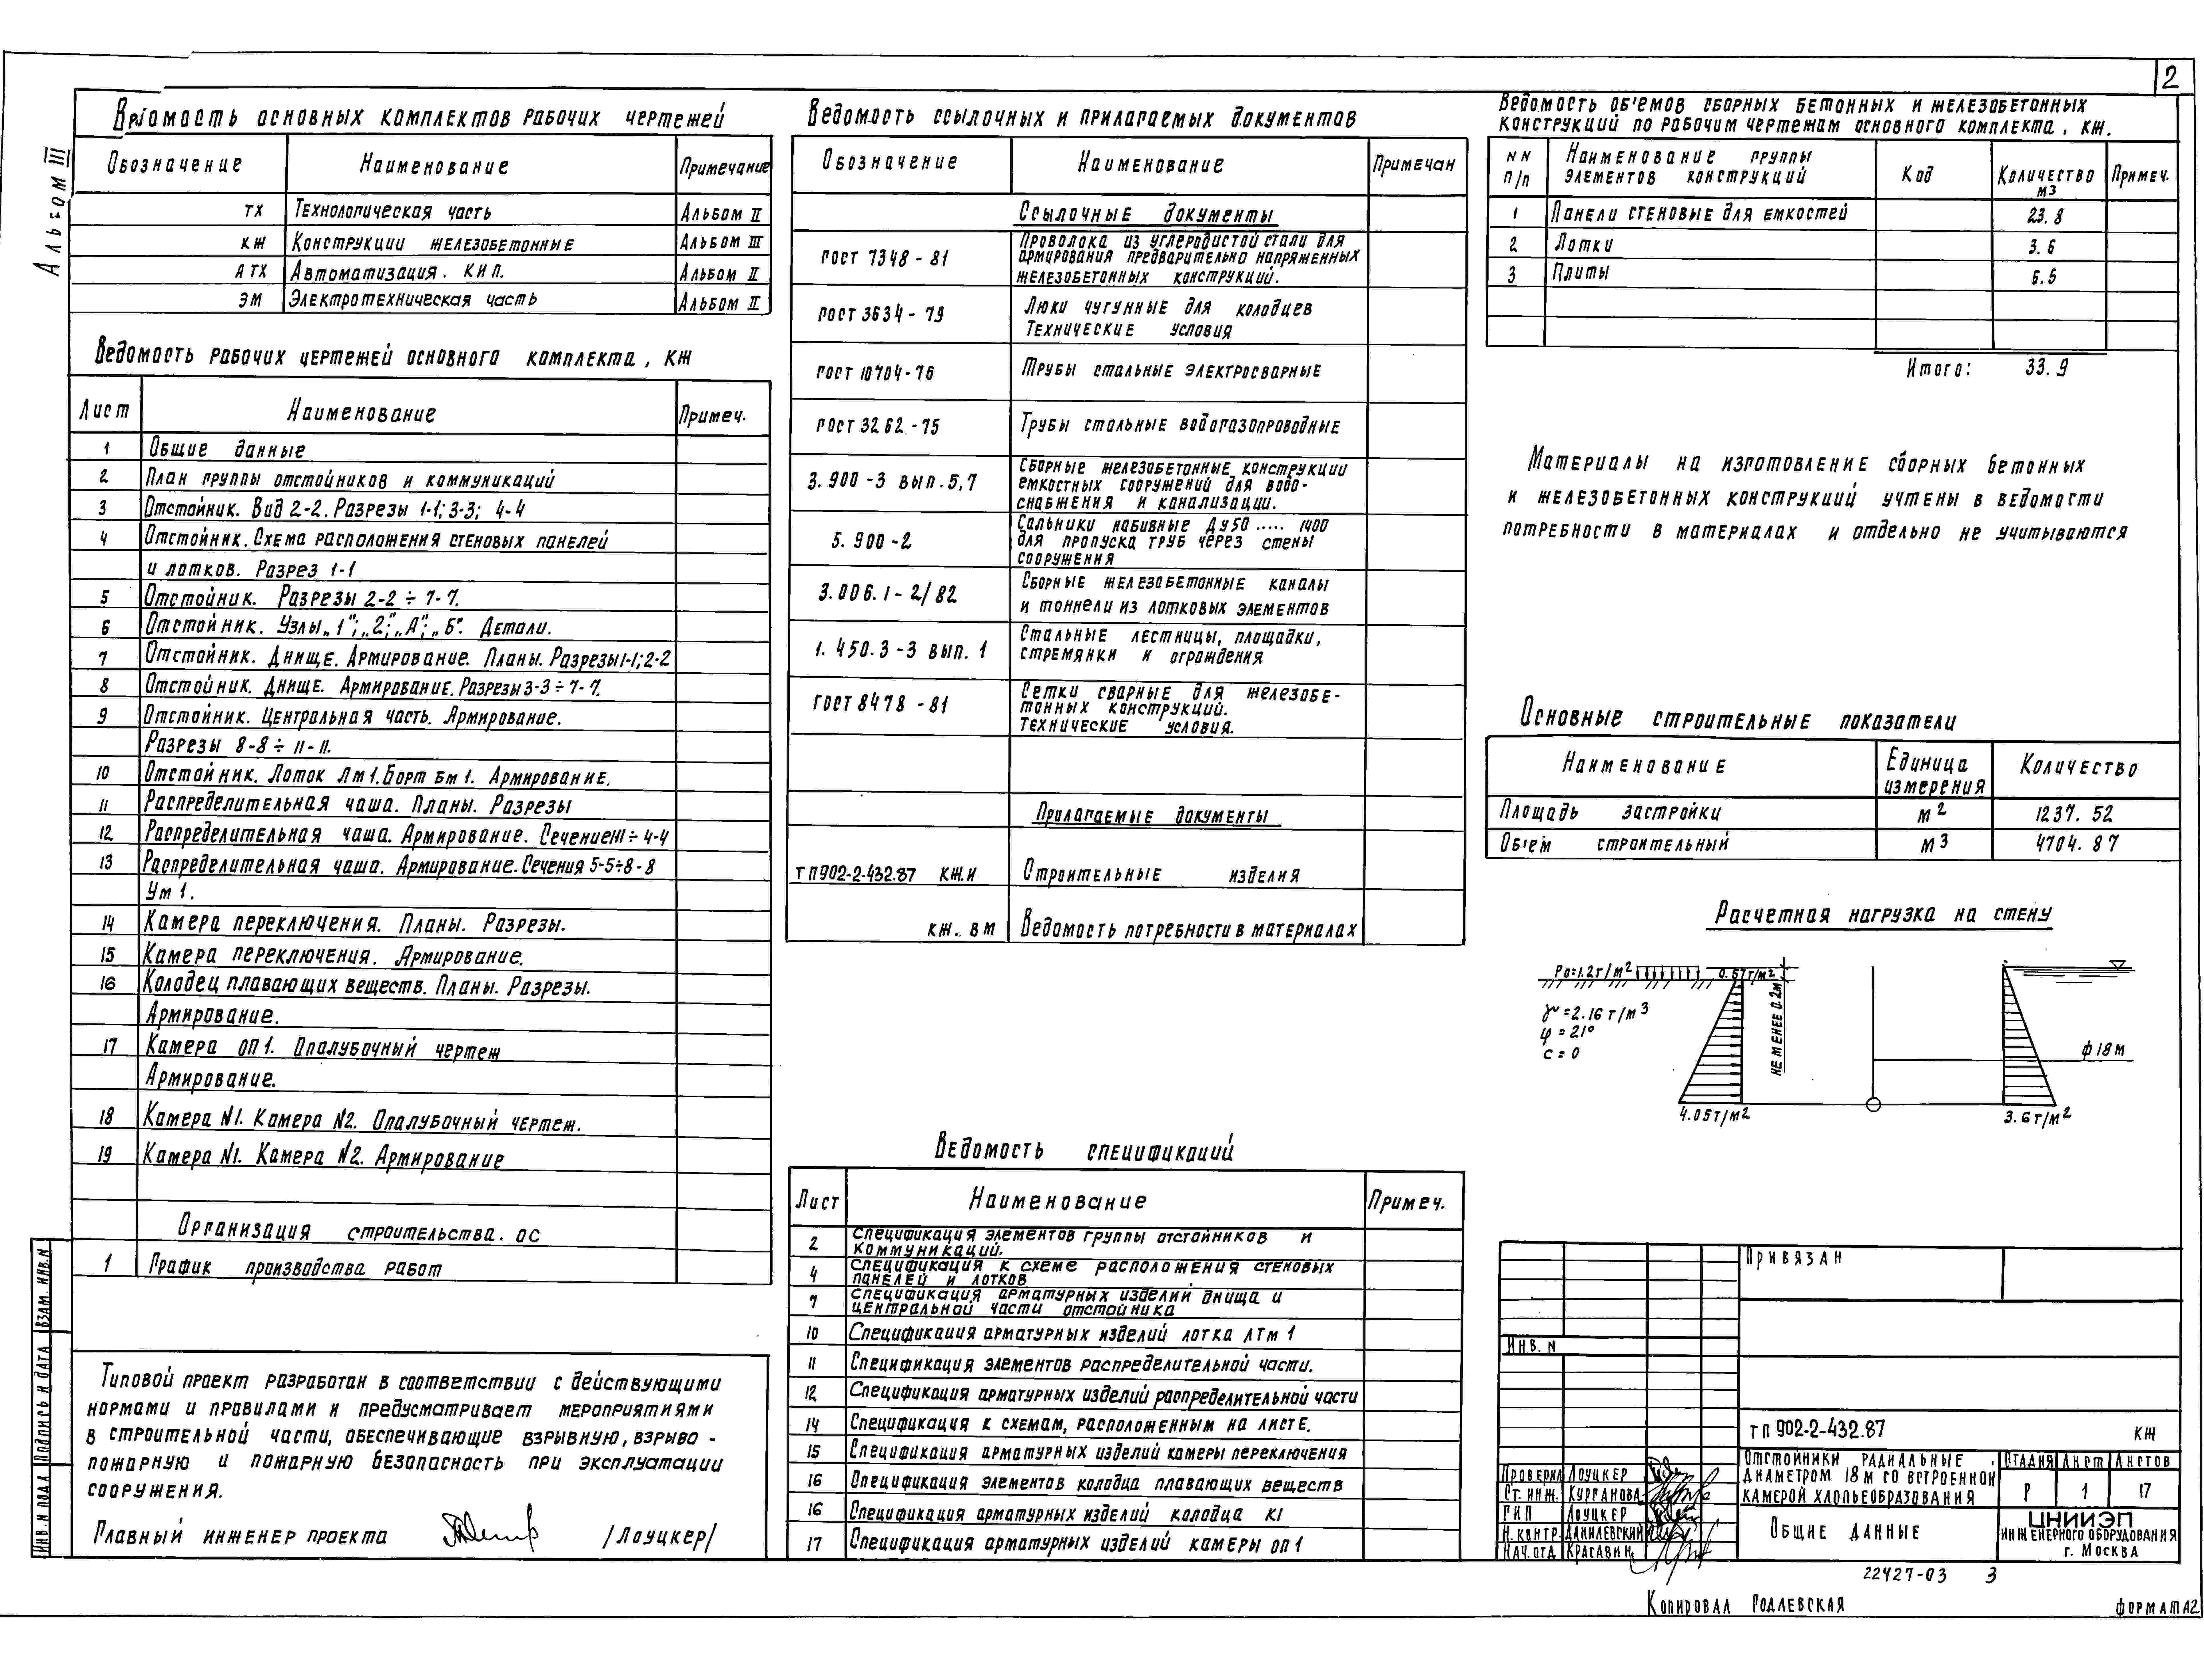 2
Альбом III
Ведомость основных комплектов рабочих чертежей
Обозначение Наименование Примечание
ТХ Технологическая часть Альбом II
КЖ Конструкции железобетонные Альбом III
АТХ Автоматизация. КИП. Альбом II
ЭМ Электротехническая часть Альбом II
Ведомость рабочих чертежей основного комплекта, КЖ
Лист Наименование Примеч.
1 Общие данные
2 План группы отстойников и коммуникаций
3 Отстойник. Вид 2-2. Разрезы 1-1; 3-3; 4-4
4 Отстойник. Схема расположения стеновых панелей
и лотков. Разрез 1-1
5 Отстойник. Разрезы 2-2 ÷ 7-7.
6 Отстойник. Узлы „1"; „2"; „А"; „Б". Детали.
7 Отстойник. Днище. Армирование. Планы. Разрезы 1-1; 2-2
8 Отстойник. Днище. Армирование. Разрезы 3-3 ÷ 7-7.
9 Отстойник. Центральная часть. Армирование.
Разрезы 8-8 ÷ 11-11.
10 Отстойник. Лоток Лм1. Борт бм1. Армирование.
11 Распределительная чаша. Планы. Разрезы
12 Распределительная чаша. Армирование. Сечение 1-1 ÷ 4-4
13 Распределительная чаша. Армирование. Сечения 5-5÷8-8
Ум 1.
14 Камера переключения. Планы. Разрезы.
15 Камера переключения. Армирование.
16 Колодец плавающих веществ. Планы. Разрезы.
Армирование.
17 Камера оп1. Опалубочный чертеж
Армирование.
18 Камера N1. Камера N2. Опалубочный чертеж.
19 Камера N1. Камера N2. Армирование
Организация строительства. ОС
1 График производства работ
Типовой проект разработан в соответствии с действующими
нормами и правилами и предусматривает мероприятиями
в строительной части, обеспечивающие взрывную, взрыво-
пожарную и пожарную безопасность при эксплуатации
сооружения.
Главный инженер проекта /Лоуцкер/
Взам. инв. N
Подпись и дата
Инв. N подл
Ведомость ссылочных и прилагаемых документов
Обозначение Наименование Примечан
Ссылочные документы
ГОСТ 7348-81 Проволока из углеродистой стали для
армирования предварительно напряженных
железобетонных конструкций.
ГОСТ 3634-79 Люки чугунные для колодцев
Технические условия
ГОСТ 10704-76 Трубы стальные электросварные
ГОСТ 3262-75 Трубы стальные водогазопроводные
3.900-3 вып. 5,7 Сборные железобетонные конструкции
емкостных сооружений для водо-
снабжения и канализации.
5.900-2 Сальники набивные Ду50 ..... 1400
для пропуска труб через стены
сооружения
3.006.1-2/82 Сборные железобетонные каналы
и тоннели из лотковых элементов
1.450.3-3 вып. 1 Стальные лестницы, площадки,
стремянки и ограждения
ГОСТ 8478-81 Сетки сварные для железобе-
тонных конструкций.
Технические условия.
Прилагаемые документы
ТП 902-2-432.87 КЖ.И Строительные изделия
КЖ. ВМ Ведомость потребности в материалах
Ведомость спецификаций
Лист Наименование Примеч.
2 Спецификация элементов группы отстойников и
коммуникаций.
4 Спецификация к схеме расположения стеновых
панелей и лотков
7 Спецификация арматурных изделий днища и
центральной части отстойника
10 Спецификация арматурных изделий лотка ЛТм 1
11 Спецификация элементов распределительной части.
12 Спецификация арматурных изделий распределительной части
14 Спецификация к схемам, расположенным на листе.
15 Спецификация арматурных изделий камеры переключения
16 Спецификация элементов колодца плавающих веществ
16 Спецификация арматурных изделий колодца К1
17 Спецификация арматурных изделий камеры оп1
Ведомость объемов сборных бетонных и железобетонных
конструкций по рабочим чертежам основного комплекта, КЖ.
NN п/п Наименование группы элементов конструкций Код Количество м3 Примеч.
1 Панели стеновые для емкостей 23.8
2 Лотки 3.6
3 Плиты 6.5
Итого: 33.9
Материалы на изготовление сборных бетонных
и железобетонных конструкций учтены в ведомости
потребности в материалах и отдельно не учитываются
Основные строительные показатели
Наименование Единица измерения Количество
Площадь застройки м2 1237.52
Объем строительный м3 4704.87
Расчетная нагрузка на стену
Ро=1.2т/м2 0.57т/м2
γ=2.16 т/м3
φ=21°
с=0
не менее 0.2м
ф18м
4.05т/м2 3.6т/м2
Привязан
Инв. N
ТП 902-2-432.87 КЖ
Проверил Лоуцкер
Ст. инж. Курганова
ГИП Лоуцкер
Н. контр. Данилевский
Нач. отд Красавин
Отстойники радиальные
диаметром 18м со встроенной
камерой хлопьеобразования
Стадия Лист Листов
Р 1 17
Общие данные
ЦНИИЭП
инженерного оборудования
г. Москва
22427-03 3
Копировал Годлевская формат А2